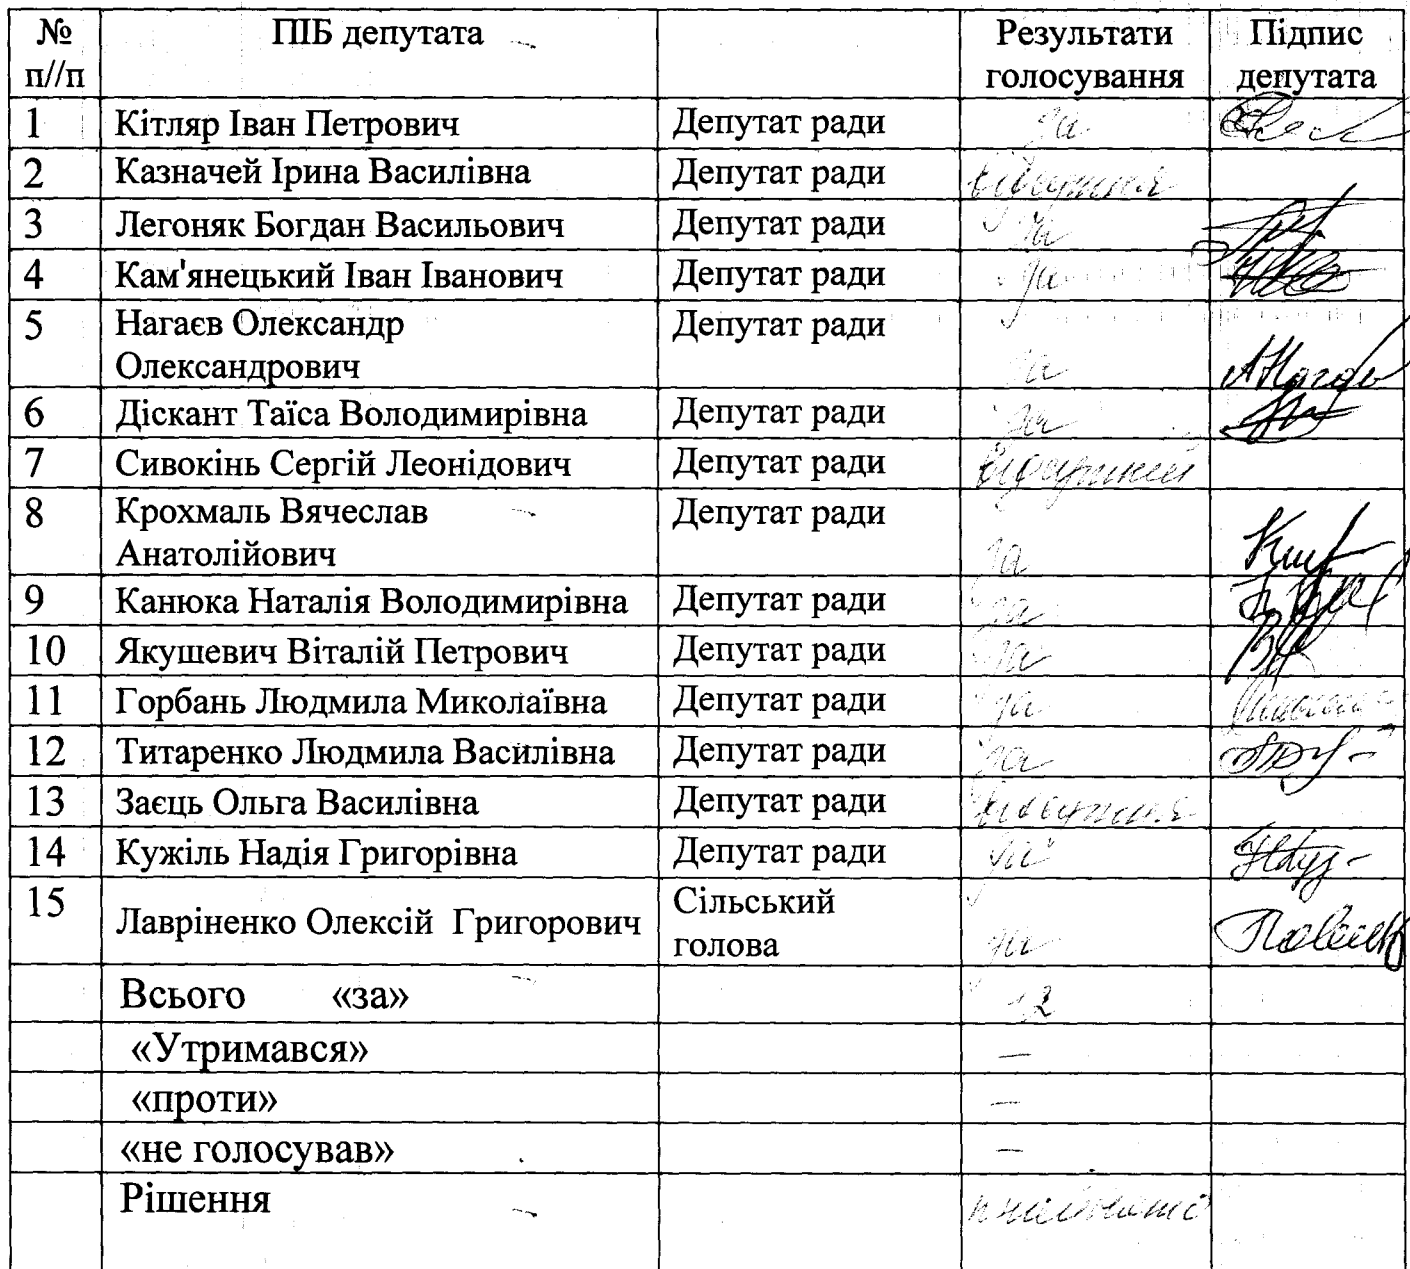 № ПІБ депутата Результати Підпис
п//п голосування депутата
1 Кітляр Іван Петрович Депутат ради за
2 Казначей Ірина Василівна Депутат ради відсутня
3 Легоняк Богдан Васильович Депутат ради За
4 Кам'янецький Іван Іванович Депутат ради за
5 Нагаєв Олександр Депутат ради
Олександрович за
6 Діскант Таїса Володимирівна Депутат ради за
7 Сивокінь Сергій Леонідович Депутат ради відсутній
8 Крохмаль Вячеслав Депутат ради
Анатолійович за
9 Канюка Наталія Володимирівна Депутат ради за
10 Якушевич Віталій Петрович Депутат ради за
11 Горбань Людмила Миколаївна Депутат ради за
12 Титаренко Людмила Василівна Депутат ради за
13 Заєць Ольга Василівна Депутат ради відсутня
14 Кужіль Надія Григорівна Депутат ради за
15 Лавріненко Олексій Григорович Сільський
голова за
Всього «за» 12
«Утримався» —
«проти» —
«не голосував» —
Рішення прийнято